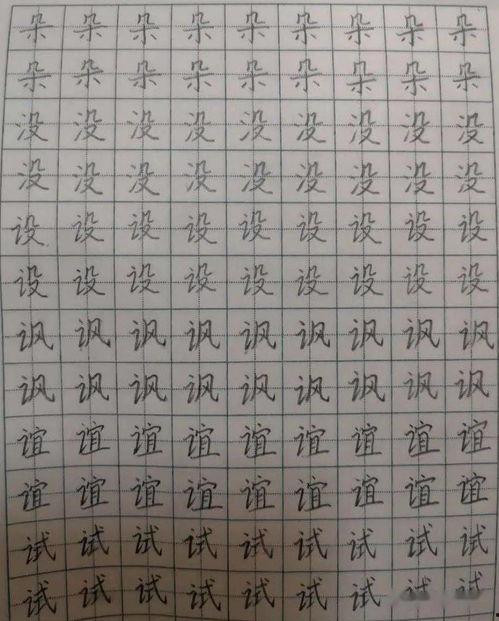 朵朵朵朵朵朵朵朵朵
朵朵朵朵朵朵朵朵朵
没没没没没没没没没
没没没没没没没没没
设设设设设设设设设
设设设设设设设设设
讽讽讽讽讽讽讽讽讽
讽讽讽讽讽讽讽讽讽
谊谊谊谊谊谊谊谊谊
谊谊谊谊谊谊谊谊谊
试试试试试试试试试
试试试试试试试试试